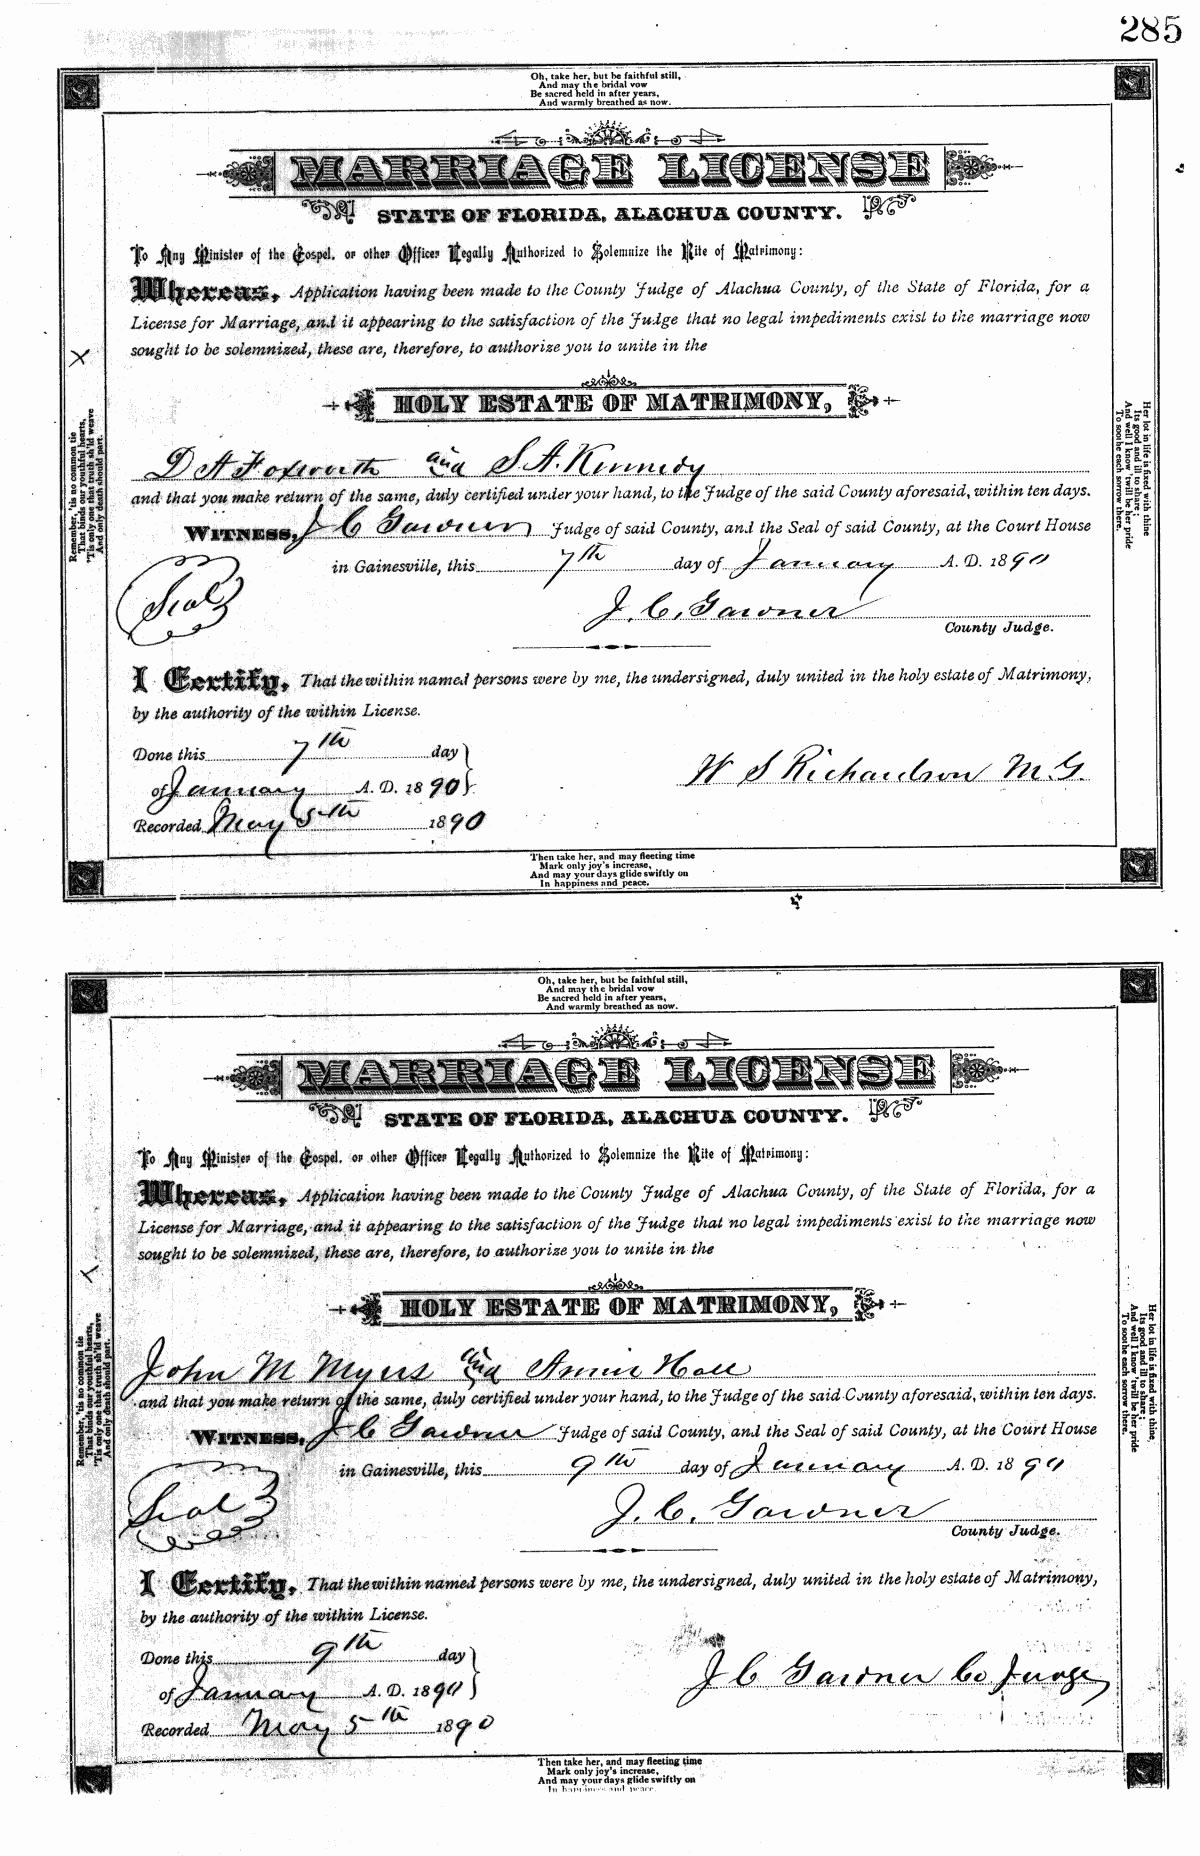 285
Oh, take her, but be faithful still,
And may the bridal vow
Be sacred held in after years,
And warmly breathed as now.
MARRIAGE LICENSE
STATE OF FLORIDA, ALACHUA COUNTY.
To Any Minister of the Gospel, or other Officer Legally Authorized to Solemnize the Rite of Matrimony:
Whereas, Application having been made to the County Judge of Alachua County, of the State of Florida, for a
License for Marriage, and it appearing to the satisfaction of the Judge that no legal impediments exist to the marriage now
sought to be solemnized, these are, therefore, to authorize you to unite in the
X
HOLY ESTATE OF MATRIMONY,
Remember, 'tis no common tie
That binds our youthful hearts,
'Tis only one that truth sh'ld weave
And only death should part.
Her lot in life is fixed with thine
Its good and ill to share;
And well I know 'twill be her pride
To soothe each sorrow there.
D A Foxworth and S. A. Kennedy
and that you make return of the same, duly certified under your hand, to the Judge of the said County aforesaid, within ten days.
WITNESS, J C Gardner Judge of said County, and the Seal of said County, at the Court House
in Gainesville, this 7th day of January A. D. 1890
Seal
J. C. Gardner
County Judge.
I Certify, That the within named persons were by me, the undersigned, duly united in the holy estate of Matrimony,
by the authority of the within License.
Done this 7th day
of January A. D. 1890
W S Richardson M. G.
Recorded May 5th 1890
Then take her, and may fleeting time
Mark only joy's increase,
And may your days glide swiftly on
In happiness and peace.
Oh, take her, but be faithful still,
And may the bridal vow
Be sacred held in after years,
And warmly breathed as now.
MARRIAGE LICENSE
STATE OF FLORIDA, ALACHUA COUNTY.
To Any Minister of the Gospel, or other Officer Legally Authorized to Solemnize the Rite of Matrimony:
Whereas, Application having been made to the County Judge of Alachua County, of the State of Florida, for a
License for Marriage, and it appearing to the satisfaction of the Judge that no legal impediments exist to the marriage now
sought to be solemnized, these are, therefore, to authorize you to unite in the
X
HOLY ESTATE OF MATRIMONY,
Remember, 'tis no common tie
That binds our youthful hearts,
'Tis only one that truth sh'ld weave
And only death should part.
Her lot in life is fixed with thine,
Its good and ill to share;
And well I know 'twill be her pride
To soothe each sorrow there.
John M Myers and Annie Hall
and that you make return of the same, duly certified under your hand, to the Judge of the said County aforesaid, within ten days.
WITNESS, J C Gardner Judge of said County, and the Seal of said County, at the Court House
in Gainesville, this 9th day of January A. D. 1890
Seal
J. C. Gardner
County Judge.
I Certify, That the within named persons were by me, the undersigned, duly united in the holy estate of Matrimony,
by the authority of the within License.
Done this 9th day
of January A. D. 1890
J C Gardner Co Judge
Recorded May 5th 1890
Then take her, and may fleeting time
Mark only joy's increase,
And may your days glide swiftly on
In happiness and peace.